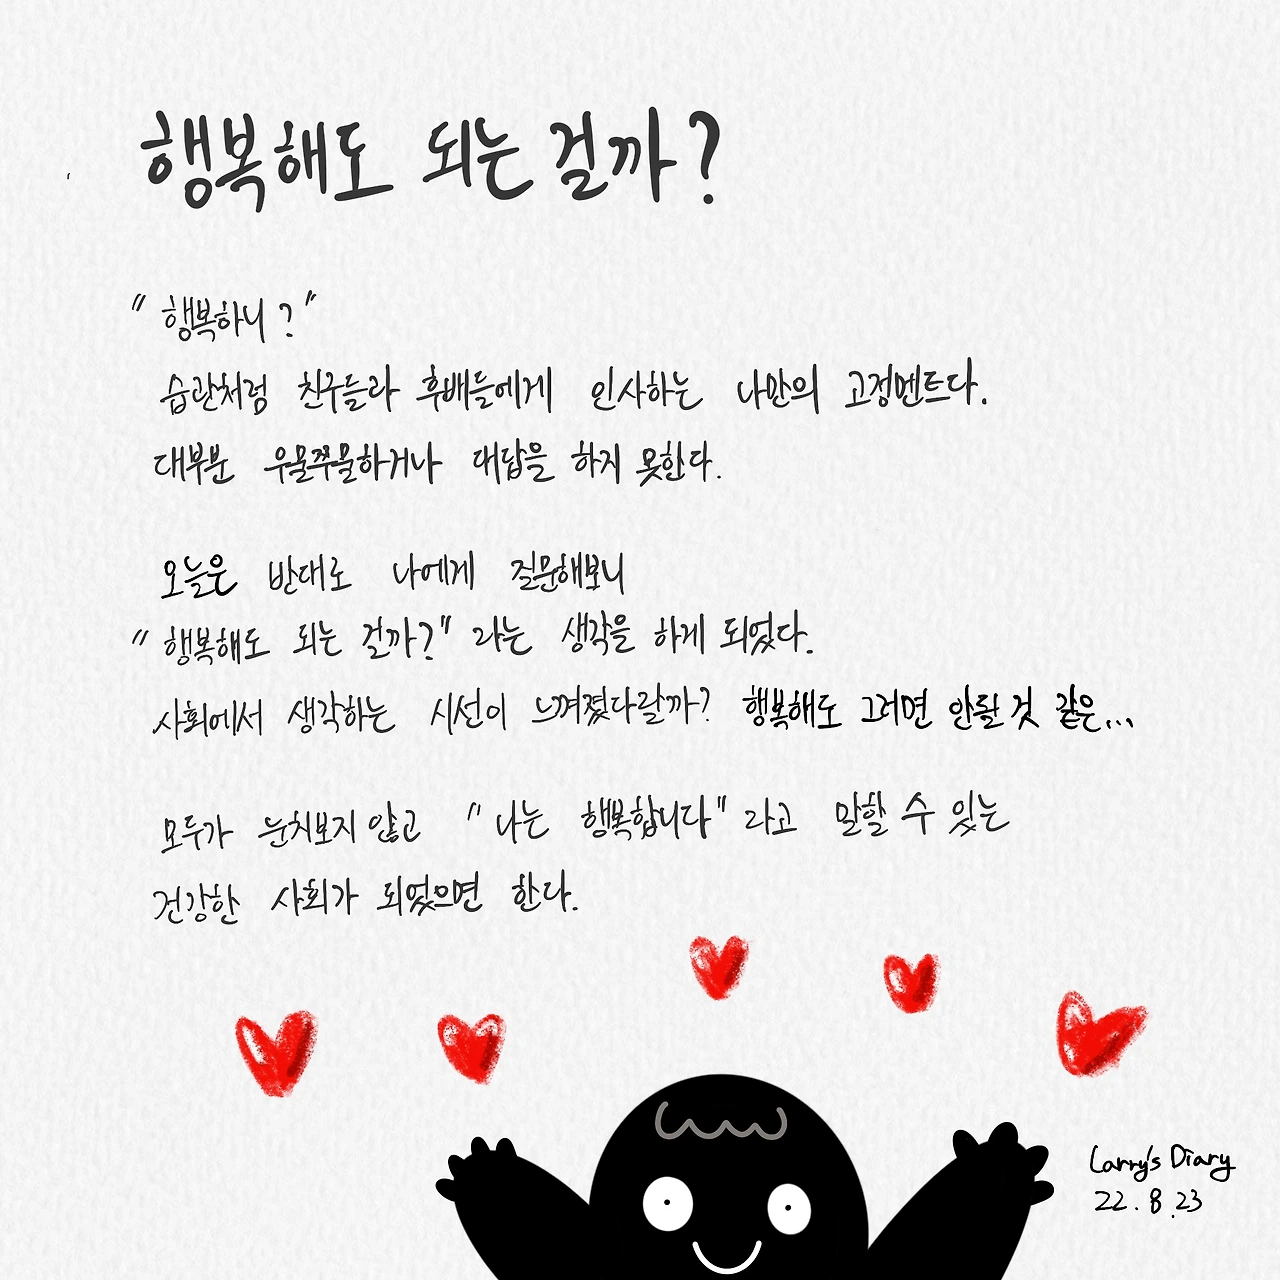 행복해도 되는 걸까?
"행복하니?"
습관처럼 친구들과 후배들에게 인사하는 나만의 고정멘트다.
대부분 우물쭈물하거나 대답을 하지 못한다.
오늘은 반대로 나에게 질문해보니
"행복해도 되는 걸까?" 라는 생각을 하게 되었다.
사회에서 생각하는 시선이 느껴졌다랄까? 행복해도 그러면 안될 것 같은...
모두가 눈치보지 않고 "나는 행복합니다" 라고 말할 수 있는
건강한 사회가 되었으면 한다.
Larry's Diary
22.8.23